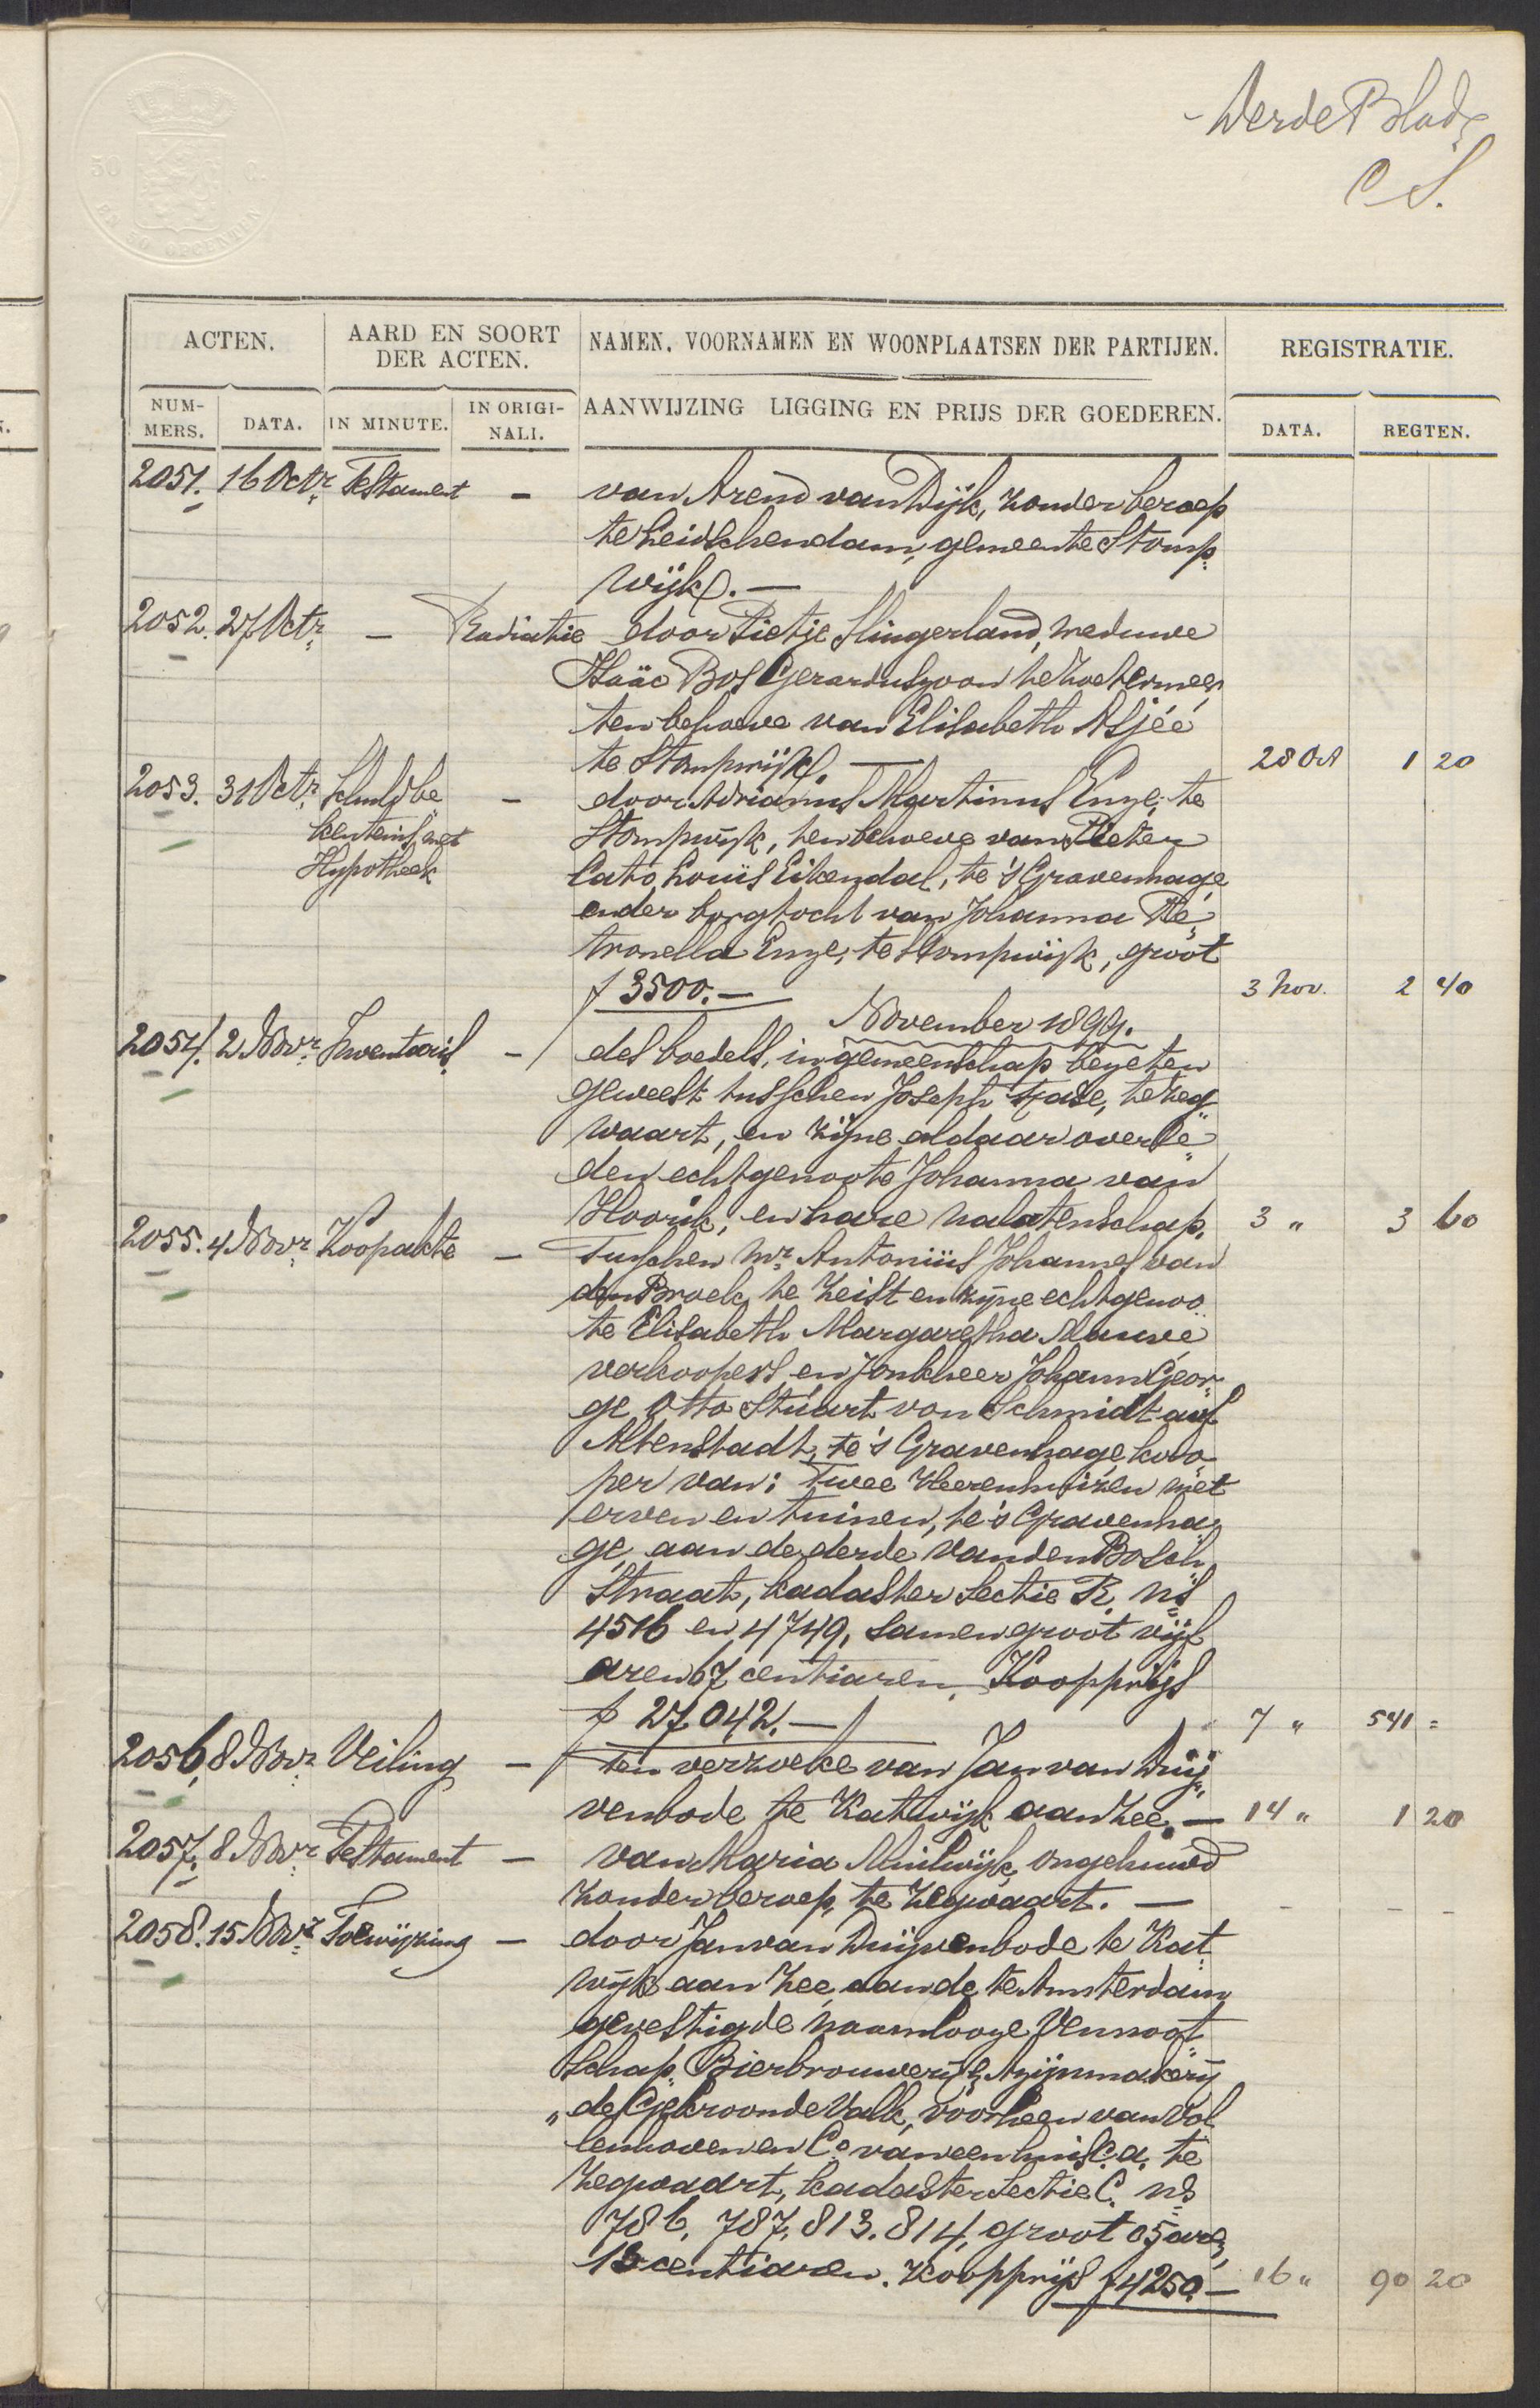 Derde Blad
C S.
50 C.
ACTEN.
AARD EN SOORT
DER ACTEN.
NAMEN, VOORNAMEN EN WOONPLAATSEN DER PARTIJEN.
REGISTRATIE.
NUM-
MERS.
DATA.
IN MINUTE.
IN ORIGI-
NALI.
AANWIJZING LIGGING EN PRIJS DER GOEDEREN.
DATA.
REGTEN.
2051. 16 Octr Testament - van Arend van Dijk, zonder beroep
te Leidschendam, gemeente Stomp-
wijk. -
2052. 27 Octr - Radiatie door Pietje Slingerland, weduwe
Isaäc Bos Gerarduszoon te Zoetermeer
ten behoeve van Elisabeth Asjéé
te Stompwijk. - 28 Oct 1 20
2053. 31 Octr Schuldbe - door Adrianus Martinus Enge, te
kentenis met Stompwijk, ten behoeve van Pieter
Hypotheek Cato Louis Eikendal, te 's Gravenhage
onder borgtocht van Johanna Pe-
tronella Enge, te Stompwijk, groot
f 3500.- 3 Nov. 2 40
November 1899.
2054. 2 Novr Inventaris - des boedels, in gemeenschap bezeten
geweest tusschen Joseph Kase, te Zeg
waart, en zijne aldaar overle
den echtgenoote Johanna van
Hoorik, en hare nalatenschap. 3 " 3 60
2055. 4 Novr Koopakte - Tusschen Mr Antonius Johannes van
den Broek, te Zeist en zijne echtgenoo
te Elisabeth Margaretha Mauve
verkoopers en Jonkheer Johann Geor-
ge Otto Stuart von Schmidt auf
Altenstadt, te 's Gravenhage, koo
per van: Twee Heerenhuizen met
erven en tuinen, te 's Gravenha-
ge, aan de derde van den Bosch
straat, kadaster sectie R. ns
4516 en 4749, samen groot vijf
aren 67 centiaren. Koopprijs
f 27.042.- 7 " 541 =
2056. 8 Novr Veiling - ten verzoeke van Jan van Duij
venbode te Katwijk aan Zee. - 14 " 1 20
2057. 8 Novr Testament - van Maria Muilwijk, ongehuwd
zonder beroep, te Zegwaart. - - - -
2058. 15 Novr Toewijzing - door Jan van Duijvenbode te Kat
wijk aan Zee, aan de te Amsterdam
gevestigde naamlooze Vennoot
schap: Bierbrouwerij & Azijnmakerij
"de Gekroonde Valk, voorheen van Vol
lenhoven en Co van een huis c.a. te
Zegwaart, kadaster sectie C. ns
786, 787, 813. 814, groot 05 are,
13 centiaren. Koopprijs f 4250.- 16 " 90 20